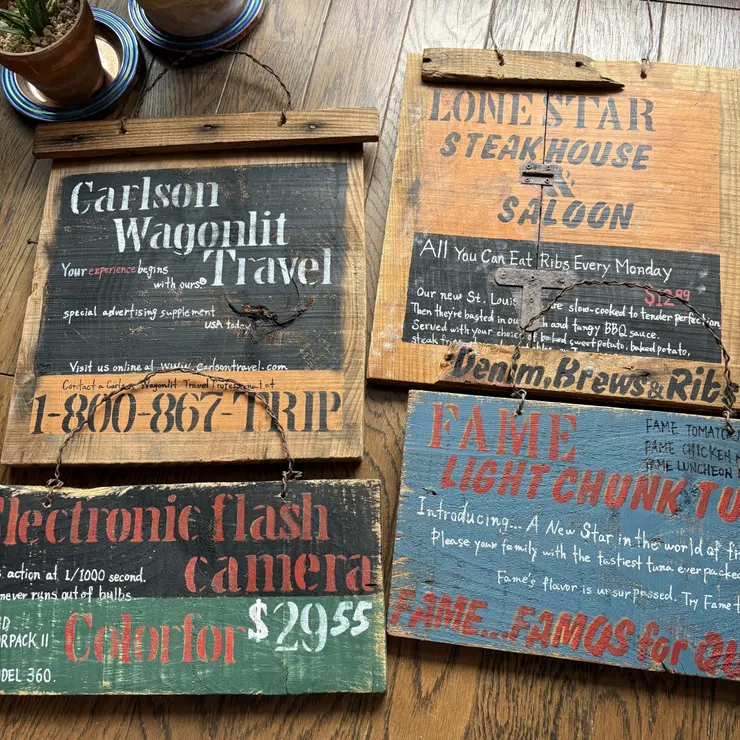 Carlson
Wagonlit
Travel
Your experience begins
with ours.®
special advertising supplement
USA today
Visit us online at www.carlsontravel.com
Contact a Carlson Wagonlit Travel Professional at
1-800-867-TRIP
LONE STAR
STEAKHOUSE
&
SALOON
All You Can Eat Ribs Every Monday
$12.99
Our new St. Louis are slow-cooked to tender perfection
Then they're basted in our and tangy BBQ sauce.
Served with your choice of baked sweet potato, baked potato,
steak fries
Denim, Brews & Ribs
Electronic flash
camera
action at 1/1000 second.
never runs out of bulbs
Colorfor $29.55
RPACK II
DEL 360.
FAME
LIGHT CHUNK TU
FAME TOMATO
FAME CHICKEN
FAME LUNCHEON
Introducing... A New Star in the world of fi
Please your family with the tastiest tuna ever packed
Fame's flavor is unsurpassed. Try Fame t
FAME...FAMOS for QU